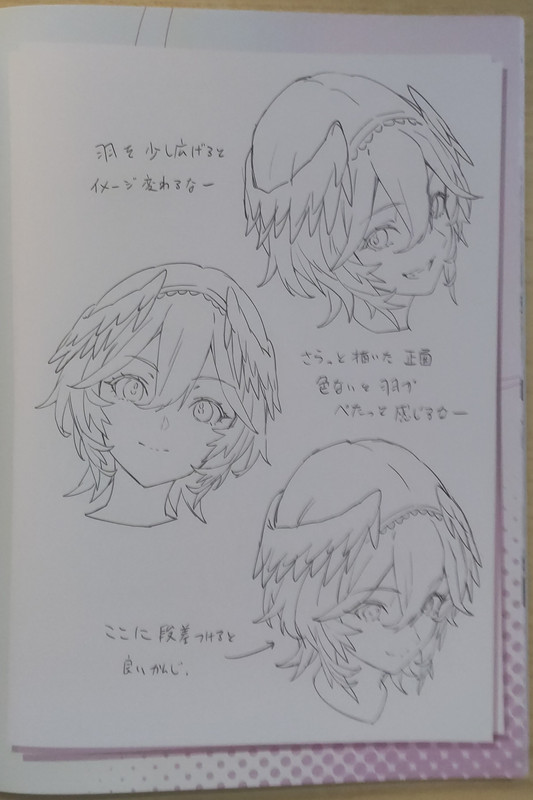 羽を少し広げると
イメージ変わるなー
さらっと描いた正面
色ないと羽が
ぺたっと感じるなー
ここに段差つけると
良いかんじ。